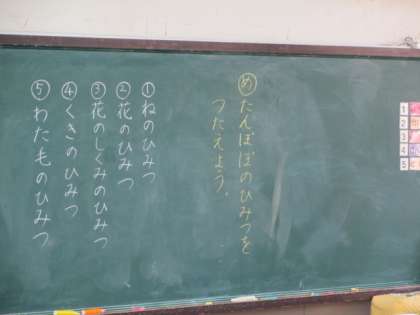 めたんぽぽのひみつを
つたえよう。
①ねのひみつ
②花のひみつ
③花のしくみのひみつ
④くきのひみつ
⑤わたものひみつ
1
2
3
4
5